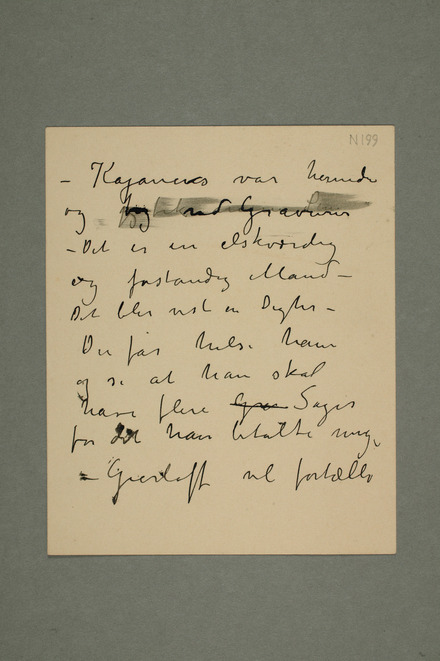 N199
– Kajanus var hernede
og ud Gravurer
– Det er en elskværdig
og forstandig Mand –
Det blev vist en Digter –
Du får hilse ham
og si at han skal
have flere Sager
for det han betalte mig,
– Gierløff vil fortælle